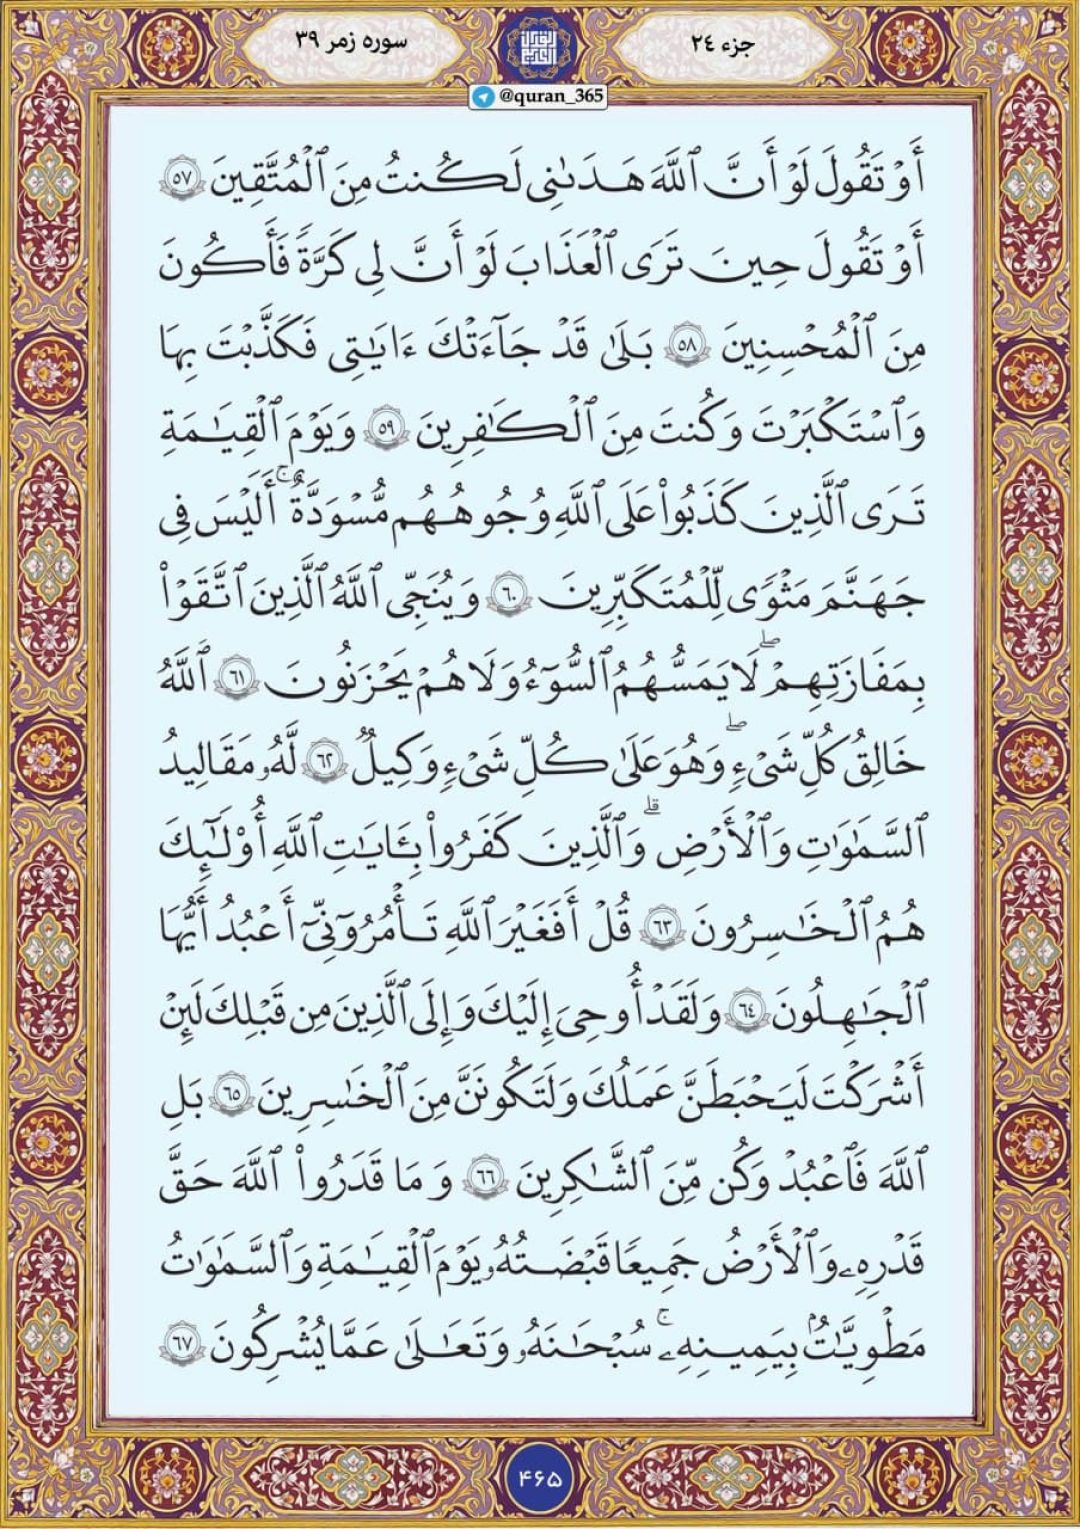 جزء ٢٤
سوره زمر ٣٩
@quran_365
أَوْ تَقُولَ لَوْ أَنَّ ٱللَّهَ هَدَىٰنِى لَكُنتُ مِنَ ٱلْمُتَّقِينَ ٥٧
أَوْ تَقُولَ حِينَ تَرَى ٱلْعَذَابَ لَوْ أَنَّ لِى كَرَّةً فَأَكُونَ
مِنَ ٱلْمُحْسِنِينَ ٥٨ بَلَىٰ قَدْ جَآءَتْكَ ءَايَٰتِى فَكَذَّبْتَ بِهَا
وَٱسْتَكْبَرْتَ وَكُنتَ مِنَ ٱلْكَٰفِرِينَ ٥٩ وَيَوْمَ ٱلْقِيَٰمَةِ
تَرَى ٱلَّذِينَ كَذَبُوا۟ عَلَى ٱللَّهِ وُجُوهُهُم مُّسْوَدَّةٌ ۚ أَلَيْسَ فِى
جَهَنَّمَ مَثْوًى لِّلْمُتَكَبِّرِينَ ٦٠ وَيُنَجِّى ٱللَّهُ ٱلَّذِينَ ٱتَّقَوْا۟
بِمَفَازَتِهِمْ ۖ لَا يَمَسُّهُمُ ٱلسُّوٓءُ وَلَا هُمْ يَحْزَنُونَ ٦١ ٱللَّهُ
خَالِقُ كُلِّ شَىْءٍ ۖ وَهُوَ عَلَىٰ كُلِّ شَىْءٍ وَكِيلٌ ٦٢ لَّهُۥ مَقَالِيدُ
ٱلسَّمَٰوَٰتِ وَٱلْأَرْضِ ۗ وَٱلَّذِينَ كَفَرُوا۟ بِـَٔايَٰتِ ٱللَّهِ أُو۟لَٰٓئِكَ
هُمُ ٱلْخَٰسِرُونَ ٦٣ قُلْ أَفَغَيْرَ ٱللَّهِ تَأْمُرُوٓنِّىٓ أَعْبُدُ أَيُّهَا
ٱلْجَٰهِلُونَ ٦٤ وَلَقَدْ أُوحِىَ إِلَيْكَ وَإِلَى ٱلَّذِينَ مِن قَبْلِكَ لَئِنْ
أَشْرَكْتَ لَيَحْبَطَنَّ عَمَلُكَ وَلَتَكُونَنَّ مِنَ ٱلْخَٰسِرِينَ ٦٥ بَلِ
ٱللَّهَ فَٱعْبُدْ وَكُن مِّنَ ٱلشَّٰكِرِينَ ٦٦ وَمَا قَدَرُوا۟ ٱللَّهَ حَقَّ
قَدْرِهِۦ وَٱلْأَرْضُ جَمِيعًا قَبْضَتُهُۥ يَوْمَ ٱلْقِيَٰمَةِ وَٱلسَّمَٰوَٰتُ
مَطْوِيَّٰتٌۢ بِيَمِينِهِۦ ۚ سُبْحَٰنَهُۥ وَتَعَٰلَىٰ عَمَّا يُشْرِكُونَ ٦٧
۴۶۵